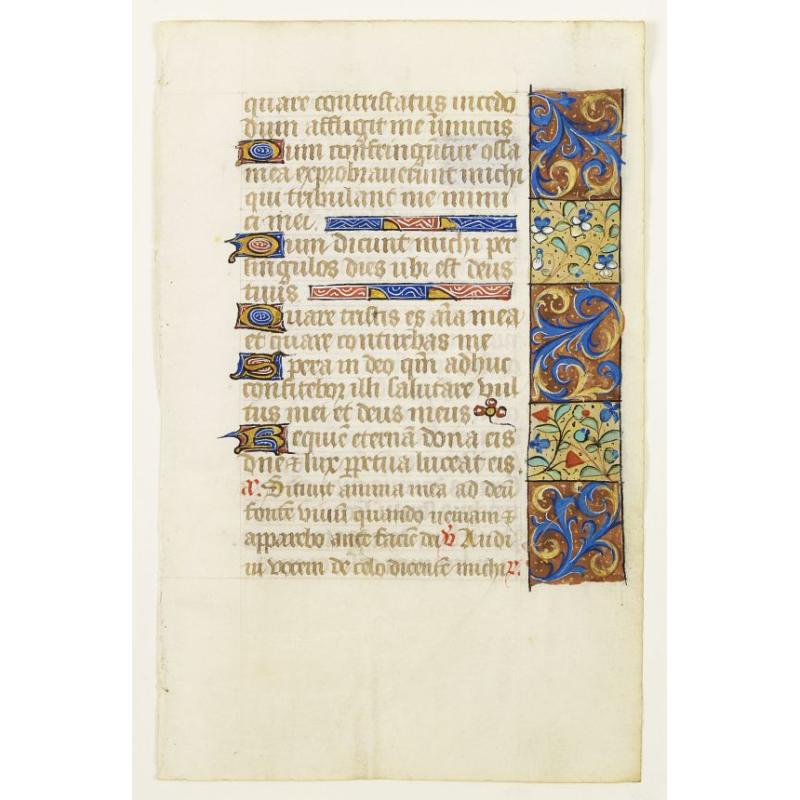 quare contristatus incedo
dum affligit me inimicus
Dum confringuntur ossa
mea exprobraverunt michi
qui tribulant me inimi
ci mei.
Dum dicunt michi per
singulos dies ubi est deus
tuus
Quare tristis es aīa mea
et quare conturbas me
Spera in deo qm̄ adhuc
confitebor illi salutare vul
tus mei et deus meus
Requiē eternā dona eis
dn̄e ⁊ lux ꝑpetua luceat eis
a͛. Sitivit anima mea ad deū
fontē vivū quando veniam ⁊
apparebo ante faciē dei ℣ Audi
vi vocem de celo dicentē michi ℟.